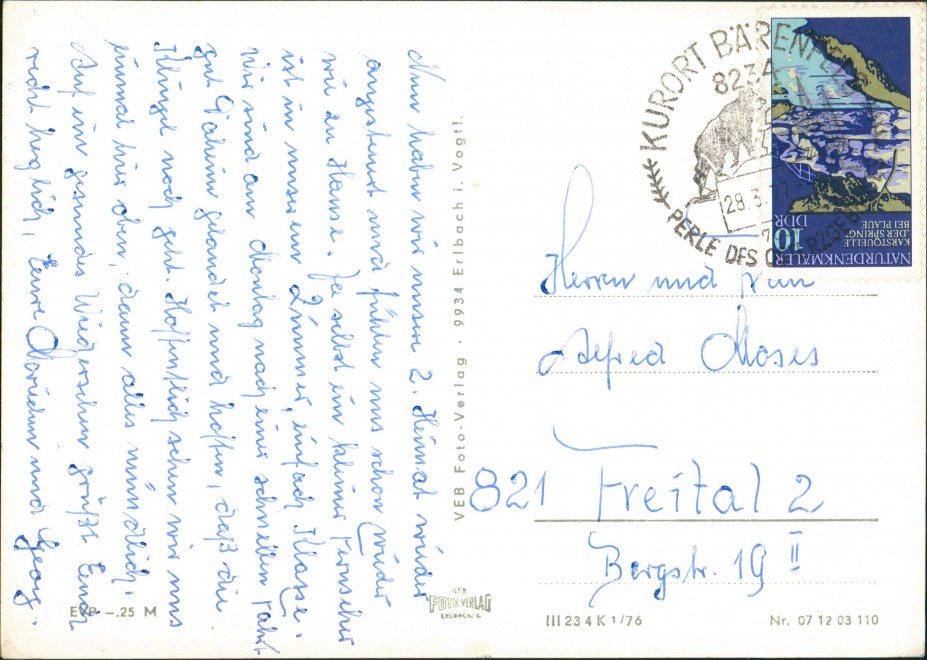 Nun haben wir unsere 2. Heimat wieder
angesteuert und fühlen uns schon wieder
wie zu Hause. Ja selbst ein kleiner Fernseher
ist in unserem Zimmer, einfach Klasse.
Wir sind am Montag nach einer schnellen Fahrt
gut daheim gelandet und hoffen, daß die
Klingel noch geht. Hoffentlich sehen wir uns
einmal hier oben, dann alles mündlich.
Auf ein gesundes Wiedersehen grüßt Euch
recht herzlich, Eure Mariechen und Georg.
EVP –.25 M
VEB Foto-Verlag · 9934 Erlbach i. Vogtl.
VEB
FOTO VERLAG
ERLBACH/V.
KURORT BÄRENFELS
823
28.3.
PERLE DES
10
DDR
NATURDENKMÄLER
KARSTQUELLE
"DER SPRING"
BEI PLAUE
Herrn und Frau
Alfred Moses
821 Freital 2
Bergstr. 19 II
III 23 4 K 1/76
Nr. 07 12 03 110